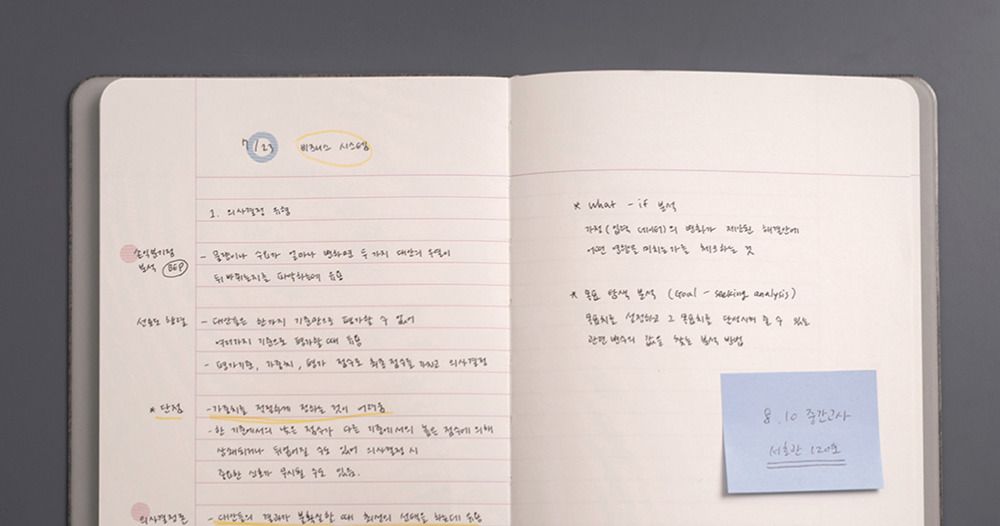 7/23 비즈니스 시스템
1. 의사결정 유형
손익분기점
분석 (BEP)
- 물량이나 수요가 얼마나 변화하면 두 가지 대안의 우열이
뒤바뀌는지를 파악하는데 유용
선호도 행렬
- 대안들은 한가지 기준만으로 평가할 수 없어
여러가지 기준으로 평가할 때 유용
- 평가기준, 가중치, 평가 점수로 최종점수를 가지고 의사결정
* 단점
- 가중치를 적절하게 정하는 것이 어려움
- 한 기준에서의 낮은 점수가 다른 기준에서의 높은 점수에 의해
상쇄되거나 뒤집어질 수도 있어 의사결정 시
중요한 신호가 무시될 수도 있음.
의사결정론
- 대안들의 결과가 불확실할 때 최선의 선택을 하는데 유용
* What - if 분석
가정(입력 데이터)의 변화가 제안된 해결안에
어떤 영향을 미치는가를 체크하는 것
* 목표 탐색 분석 (Goal - seeking analysis)
목표치를 설정하고 그 목표치를 달성시켜 줄 수 있는
관련변수의 값을 찾는 분석 방법
8.10 중간고사
120호